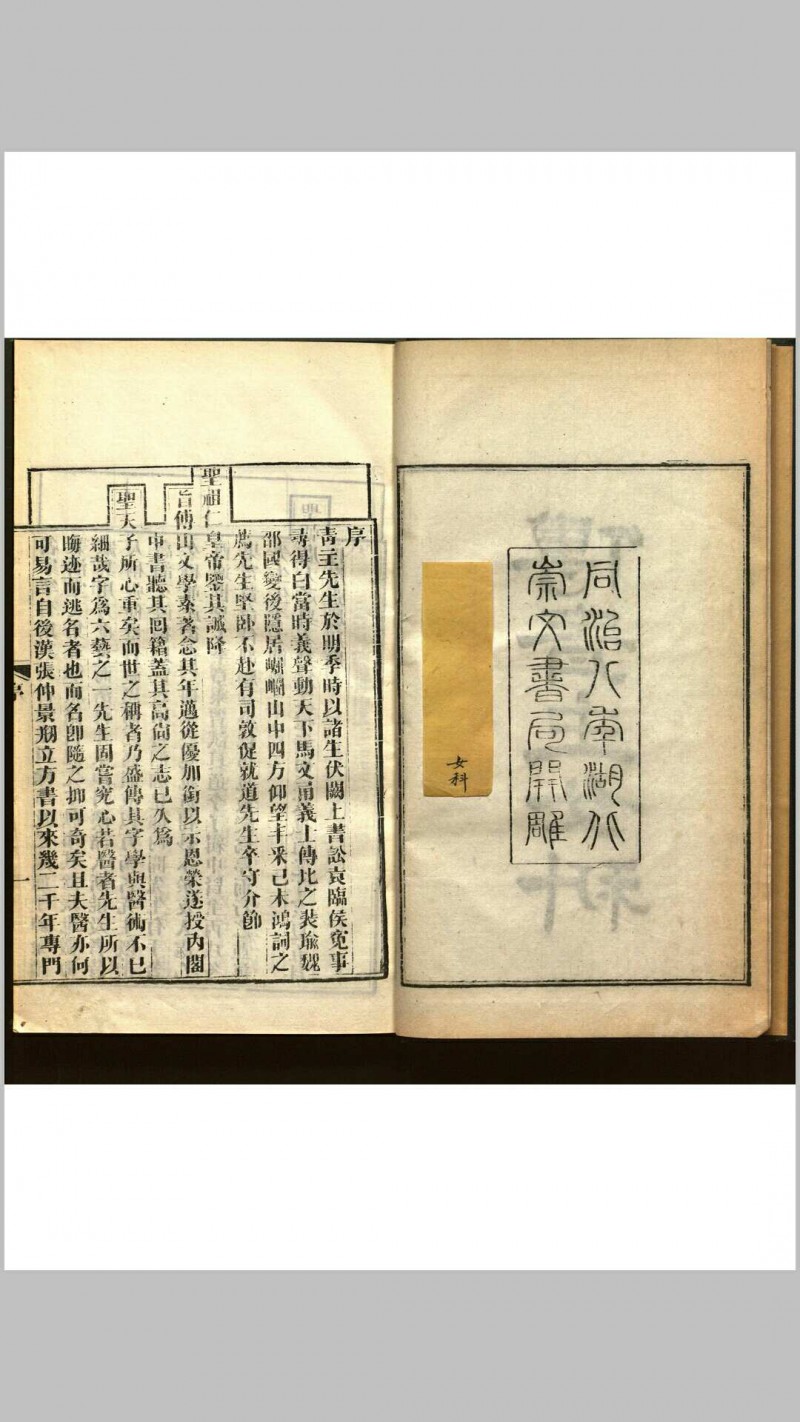 同治八年湖北
崇文書局開雕
女科
序
青主先生於明季時以諸生伏闕上書訟袁臨侯冤事
尋得白當時義聲動天下馬文甬義士傳比之裴瑜魏
邵國變後隱居崛崓山中四方仰望丰采己未鴻詞之
薦先生堅臥不赴有司敦促就道先生卒守介節
聖祖仁皇帝鑒其誠降
旨傅山文學素著念其年邁從優加銜以示恩榮遂授內閣
中書聽其回籍蓋其高尚之志已久為
聖天子所心重矣而世之稱者乃盛傳其字學與醫術不已
細哉字為六藝之一先生固嘗究心若醫者先生所以
晦迹而逃名者也而名卽隨之抑可奇矣且夫醫亦何
可易言自後漢張仲景刱立方書以來幾二千年專門
序
一